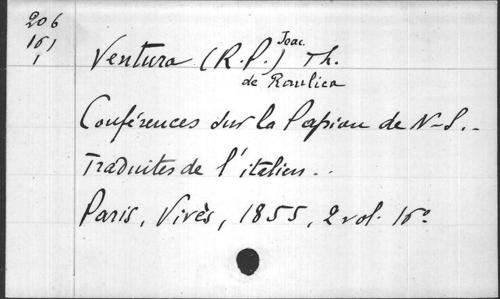 206
161
1
Ventura (R.P.) Joac. Th.
de Raulica
Conférences sur la Passion de N-S. -
Traduites de l'italien. .
Paris, Vivès, 1855, 2 vol. 16°